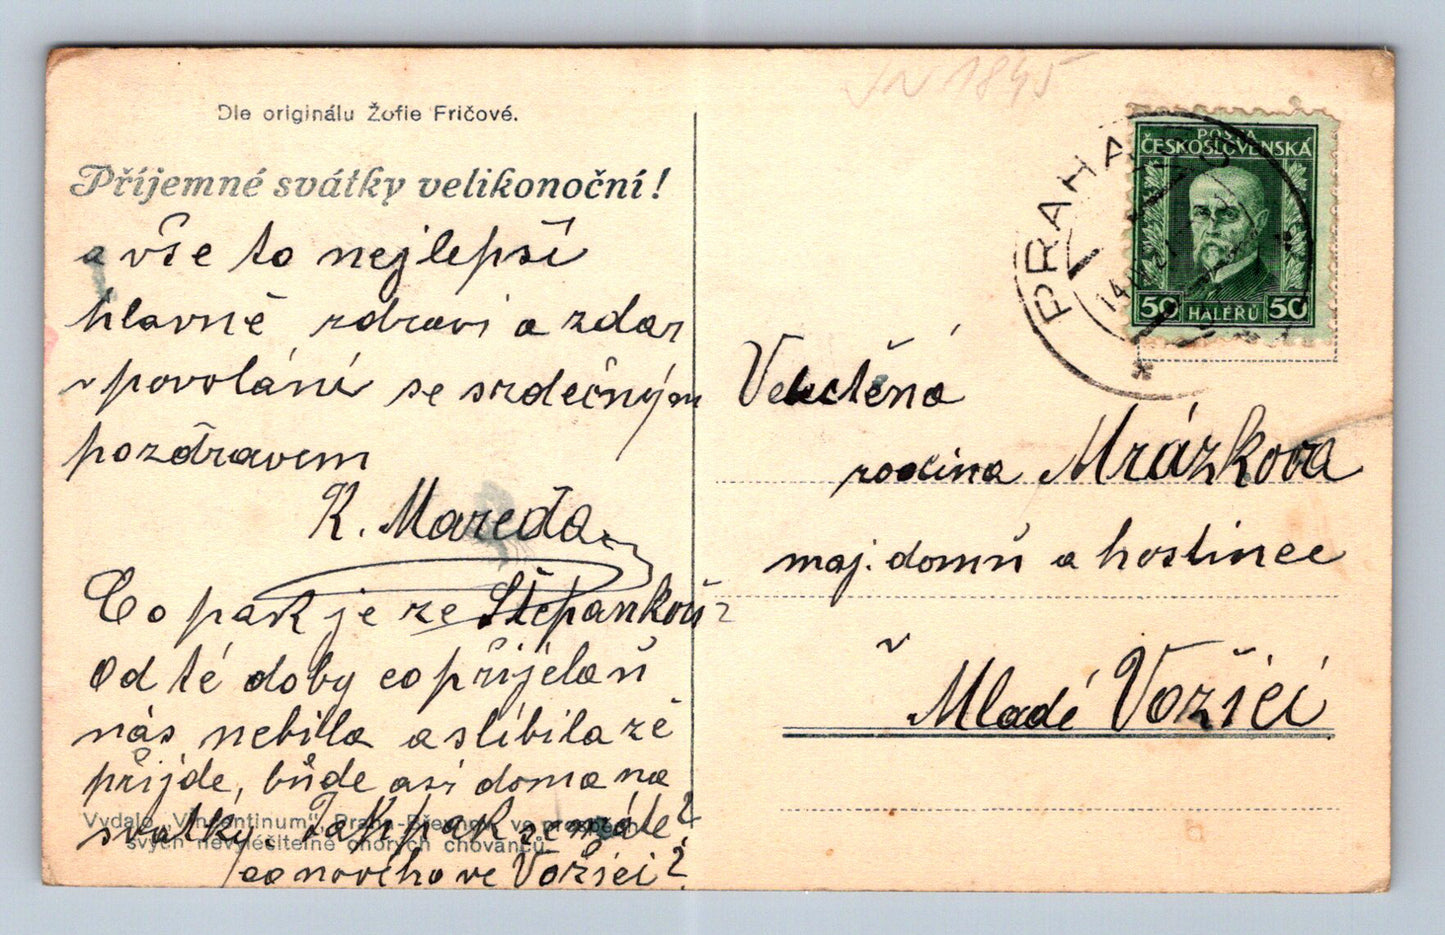 Dle originálu Žofie Fričové.
Příjemné svátky velikonoční!
a vše to nejlepší
hlavně zdraví a zdar
v povolání se srdečným
pozdravem
K. Mareda
Co pak je ze Štěpankou?
Od té doby co přijela ň
nás nebilla a slíbila zě
přijde, bude asi doma na
svatky. Jakpak se máte?
co nového ve Vožici?
Vydalo „Vincentinum", Praha-Břevnov, ve prospěch
svých nevyléčitelně chorých chovanců.
IN 1845
POŠTA
ČESKOSLOVENSKÁ
50 HALÉŘŮ 50
PRAHA
Velectěná
rodina Mrázkova
maj. domů a hostince
v
Mladé Vožici